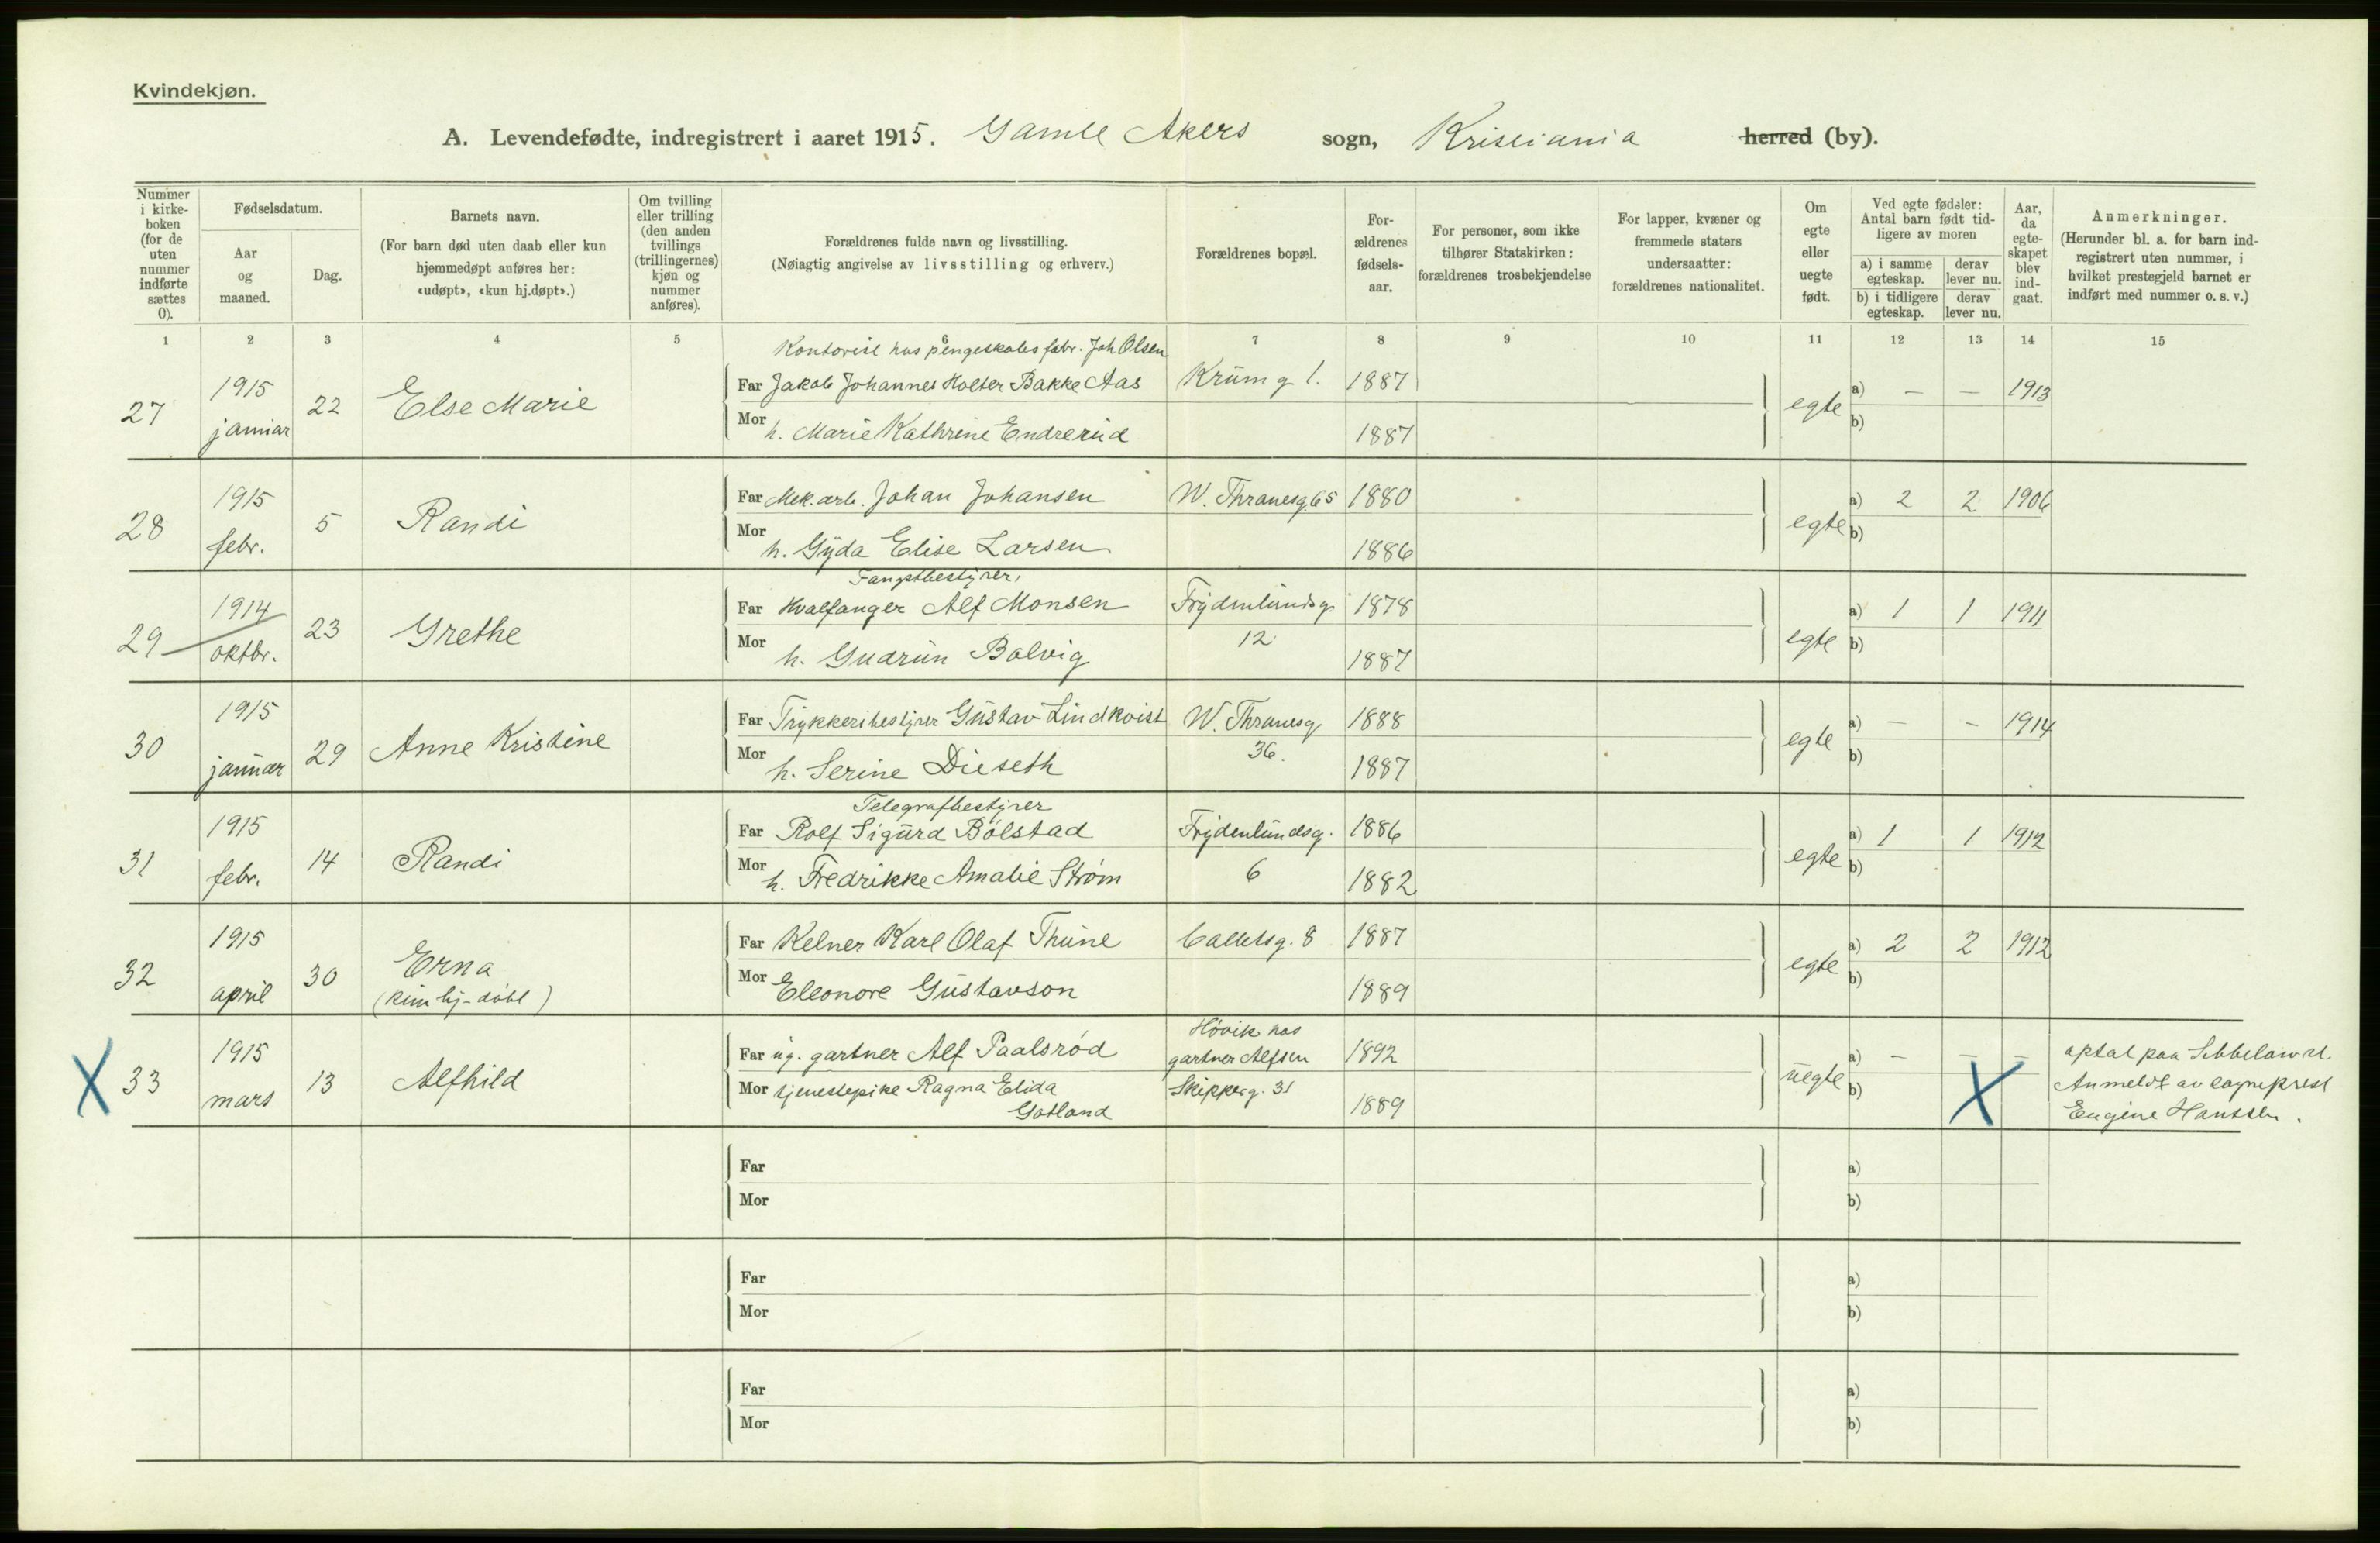 Kvindekjøn.
A. Levendefødte, indregistrert i aaret 1915. Gamle Akers sogn, Kristiania herred (by).
Nummer i kirke-boken (for de uten nummer indførte sættes 0).
Fødselsdatum.
Aar og maaned.
Dag.
Barnets navn.
(For barn død uten daab eller kun hjemmedøpt anføres her: «udøpt», «kun hj.døpt».)
Om tvilling eller trilling (den anden tvillings (trillingernes) kjøn og nummer anføres).
Forældrenes fulde navn og livsstilling.
(Nøiagtig angivelse av livsstilling og erhverv.)
Forældrenes bopæl.
For-ældrenes fødsels-aar.
For personer, som ikke tilhører Statskirken: forældrenes trosbekjendelse
For lapper, kvæner og fremmede staters undersaatter: forældrenes nationalitet.
Om egte eller uegte født.
Ved egte fødsler: Antal barn født tid-ligere av moren
a) i samme egteskap.
derav lever nu.
b) i tidligere egteskap.
derav lever nu.
Aar, da egte-skapet blev ind-gaat.
Anmerkninger.
(Herunder bl. a. for barn ind-registrert uten nummer, i hvilket prestegjeld barnet er indført med nummer o. s. v.)
1 2 3 4 5 6 7 8 9 10 11 12 13 14 15
Kontorist hos pengeskabsfabr. Joh Olsen
27 1915 januar 22 Else Marie Far Jakob Johannes Holter Bakke Aas Krumg 1. 1887 egte a) — — 1913
Mor h. Marie Kathrine Endrerud 1887 b)
28 1915 febr. 5 Randi Far Mek.arb. Johan Johansen W. Thranesg. 65 1880 egte a) 2 2 1906
Mor h. Gyda Elise Larsen 1886 b)
Fangstbestyrer,
29 1914 oktbr. 23 Grethe Far Hvalfanger Alf Monsen Frydenlundsg. 1878 egte a) 1 1 1911
Mor h. Gudrun Bolvig 12 1887 b)
30 1915 januar 29 Anne Kristine Far Trykkeribestyrer Gustav Lindkvist W. Thranesg 1888 egte a) — - 1914
Mor h. Serine Dieseth 36. 1887 b)
Telegrafbestyrer
31 1915 febr. 14 Randi Far Rolf Sigurd Bølstad Frydenlundsg. 1886 egte a) 1 1 1912
Mor h. Fredrikke Amalie Strøm 6 1882 b)
32 1915 april 30 Erna Far Kelner Karl Olaf Thune Calletsg. 8 1887 egte a) 2 2 1912
(kun hj-døbt) Mor Eleonore Gustavson 1889 b)
Høvik hos
X 33 1915 mars 13 Alfhild Far ug. gartner Alf Paalsrød gartner Alfsen 1892 uegte a) - — — optat paa
Mor tjenestepike Ragna Elida Skipperg. 31 b) X Anmeldt av sogneprest
Gotland 1889 Eugène Hanssen.
Far a)
Mor b)
Far a)
Mor b)
Far a)
Mor b)